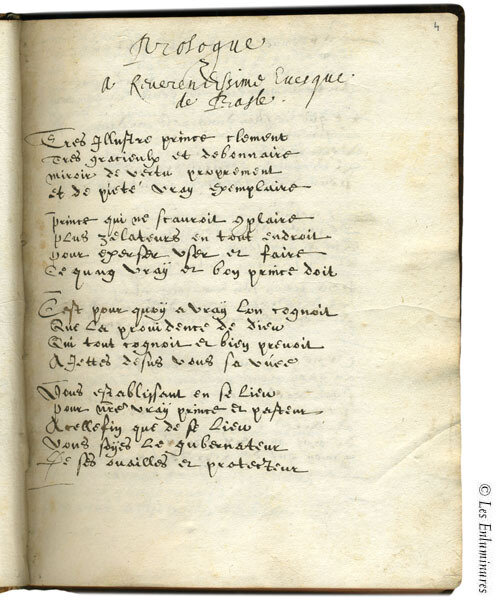 4
Prologue
A Reverendissime Evesque
de Basle.
Tres Illustre prince clement
Tres gracieulx et debonnaire
miroir de vertu proprement
et de pieté vray exemplaire
Prince qui ne scauroit 9plaire
Plus zelateurs en tout endroit
Pour exerser user et faire
Ce quung vray et bon prince doit
Cest pour quoy a vray lon cognoit
Que la providence de dieu
Qui tout cognoit et bien prevoit
A jettes desus vous sa vuee
Vous establissant en se lieu
Pour nre vray prince et pasteur
Acellefin que de se lieu
Vous soyes le gubernateur
De ses ouailles et protecteur
© Les Enluminures